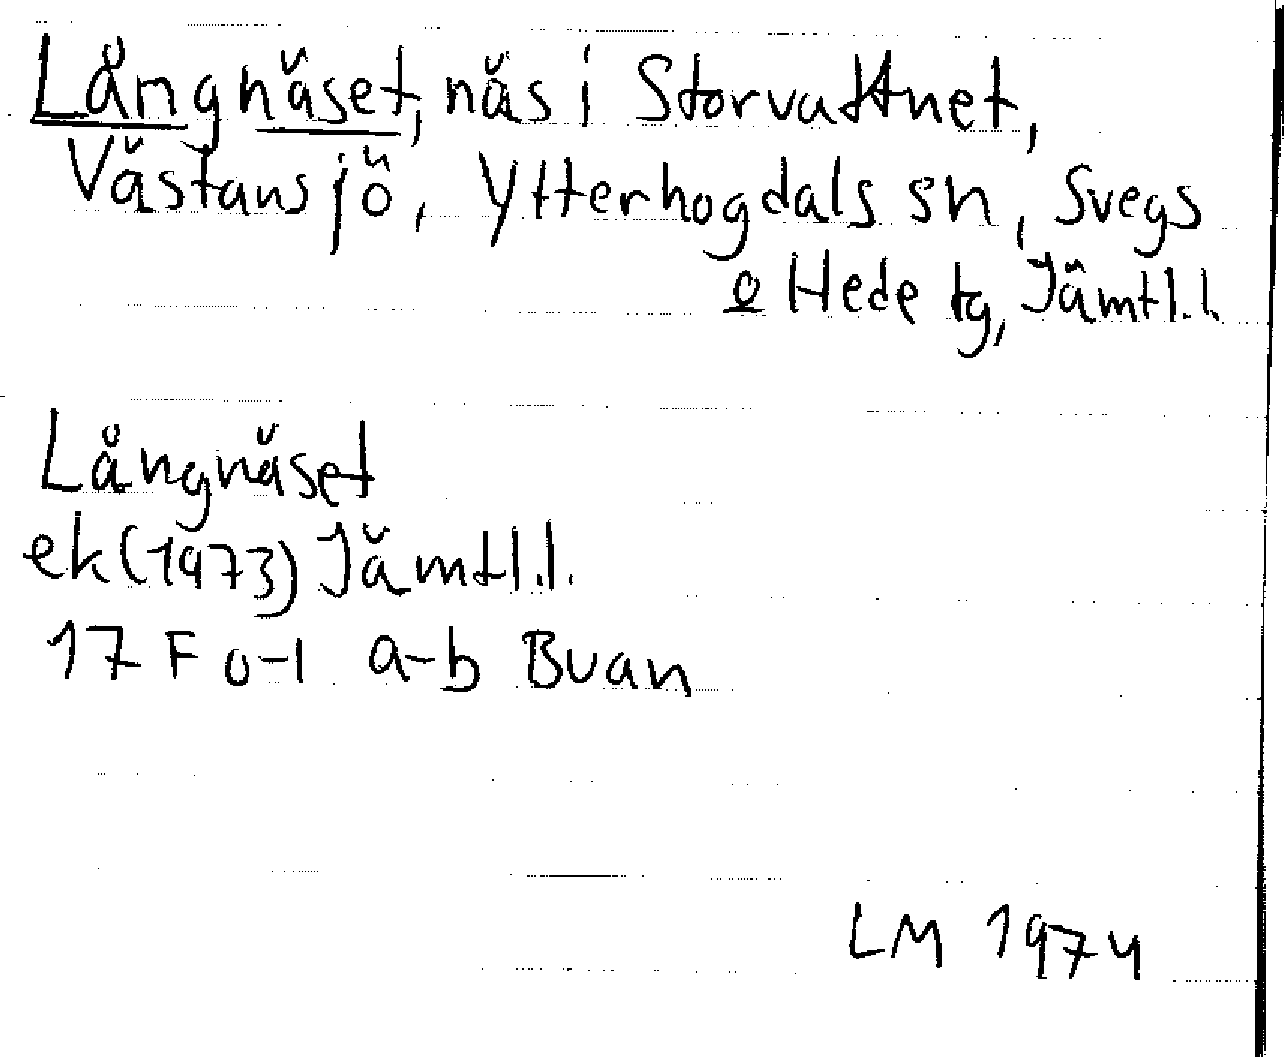 Långnäset, näs i Storvattnet,
Västansjö, Ytterhogdals sn, Svegs
o Hede tg, Jämtl.l.
Långnäset
ek(1973) Jämtl.l.
17 F 0-1 a-b Buan
LM 1974